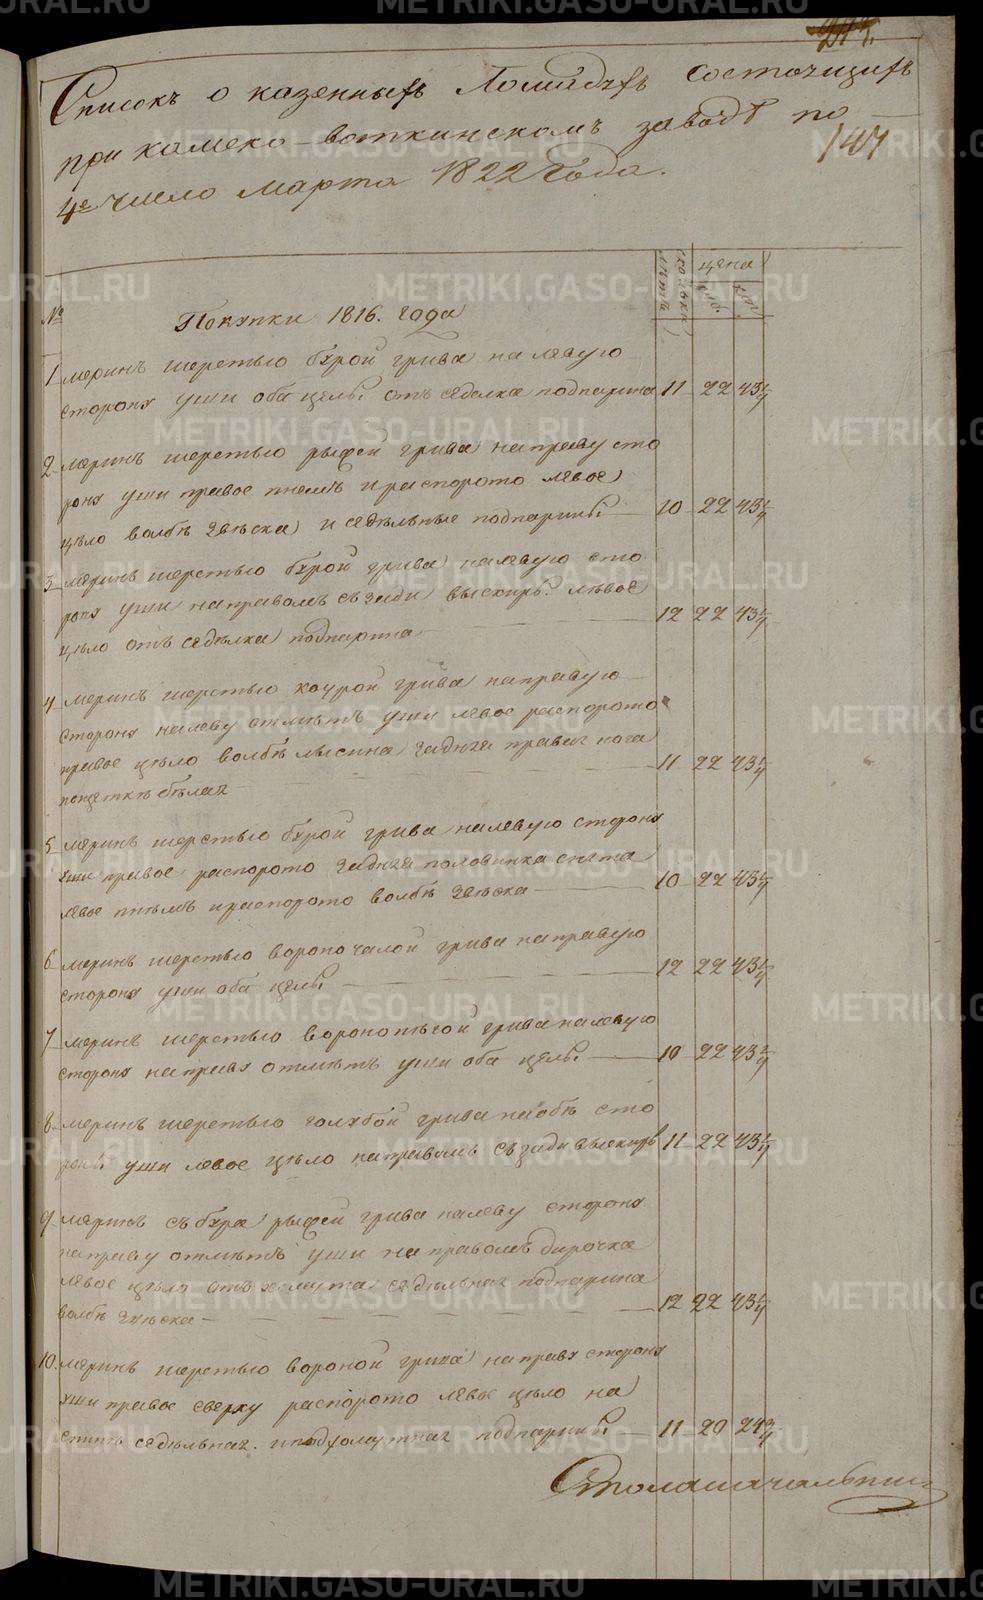 147
Списокъ о казенныхъ Лошадѣхъ состоящихъ
при камско-воткинскомъ заводѣ по
4е число марта 1822 года.
№
сколька лѣтъ
цѣна
руб.
коп.
Покупки 1816. года
1 меринъ шерстью бурой грива на лѣвую
сторону уши оба целы отъ седелка подпарина 11 22 43
2 меринъ шерстью рыжей грива направу сто
рону уши правое пнемъ и распорото левое
цѣло волбѣ звѣска и седѣльные подпарины 10 22 43
3 меринъ шерстью бурой грива налевую сто
рону уши направомъ съзади выскирь левое
цѣло отъ седѣлка подпарина 12 22 43
4 меринъ шерстью каурой грива направую
сторону налеву отметъ уши левое распорото
правое цѣло волбѣ лысина задняя правая нога
пощеткѣ белая 11 22 43
5 меринъ шерстью бурой грива налевую сторону
уши правое распорото задняя половинка снята
левое пнемъ ираспорото волбѣ звѣска 10 22 43
6 меринъ шерстью вороно чалой грива направую
сторону уши оба целы 12 22 43
7 меринъ шерстью воронопегой грива налевую
сторону направу отметъ уши оба целы 10 22 43
8 меринъ шерстью голубой грива наобѣ сто
роны уши левое цѣло направомъ съзади выскирь 11 22 43
9 меринъ съ бура рыжей грива налеву сторону
направу отметъ уши на правомъ дирочка
левое цѣло отъ хомута седѣльная подпарина
волбѣ звѣска 12 22 43
10. меринъ шерстью вороной грива направу сторону
уши правое сверху распорото левое цѣло на
спинѣ седѣльная и подхомутная подпарины 11 20 24